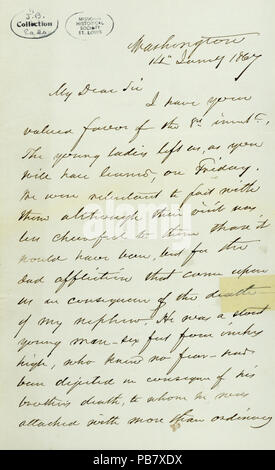 J.B.
Collection
MISSOURI
HISTORICAL
SOCIETY
ST. LOUIS
Washington
14 Jany 1867
My Dear Sir
I have your
valued favor of the 8th inst.
The young ladies left us, as you
will have learned on Friday.
We were reluctant to part with
them although their visit was
less cheerful to them than it
would have been, but for the
sad affliction that came upon
us in consequence of the death
of my nephew. He was a stout
young man - six feet four inches
high, who knew no fear - had
been dejected in consequence of his
brother's death, to whom he was
attached with more than ordinary
alamy
Image ID: PB7XDX
www.alamy.com